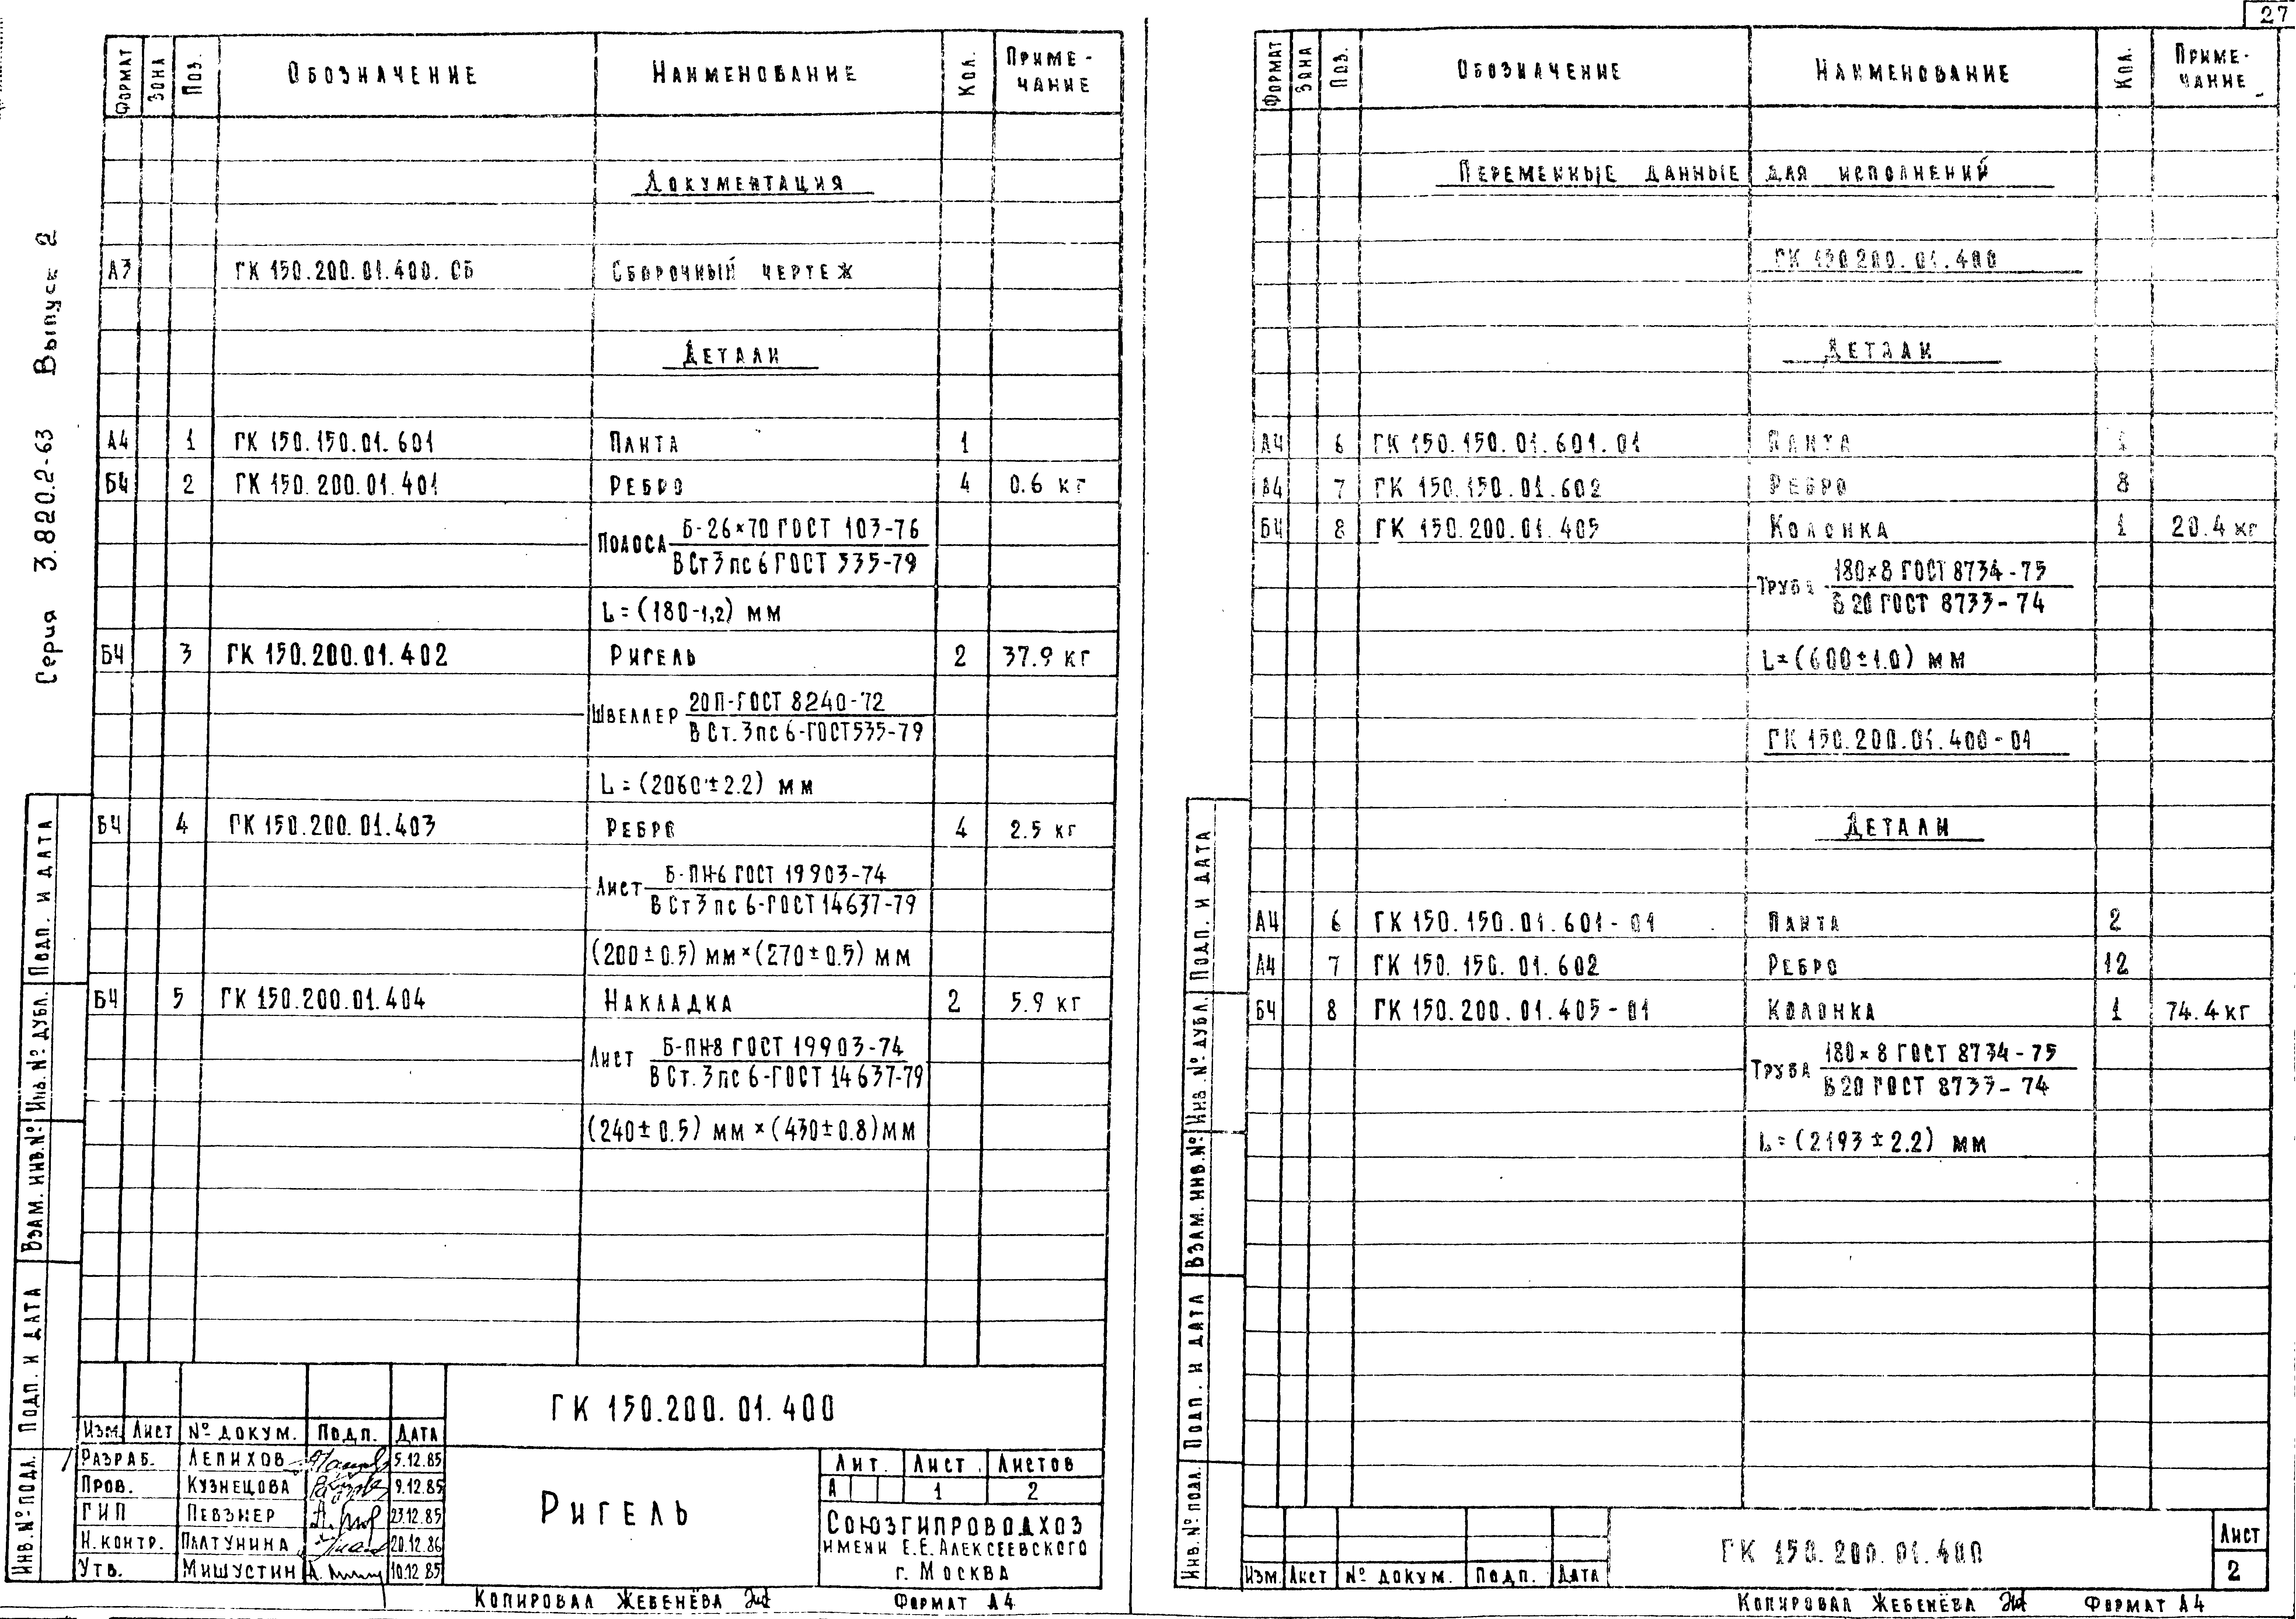 27
Серия 3.820.2-63 Выпуск 2
Формат Зона Поз. Обозначение Наименование Кол. Приме-чание
Документация
А3 ГК 150.200.01.400.СБ Сборочный чертеж
Детали
А4 1 ГК 150.150.01.601 Плита 1
БЧ 2 ГК 150.200.01.401 Ребро 4 0.6 кг
Полоса Б-26×70 ГОСТ 103-76
В Ст3пс6 ГОСТ 535-79
L=(180-1,2) мм
БЧ 3 ГК 150.200.01.402 Ригель 2 37.9 кг
Швеллер 20П-ГОСТ 8240-72
В Ст.3пс6-ГОСТ535-79
L=(2060±2.2) мм
БЧ 4 ГК 150.200.01.403 Ребро 4 2.5 кг
Лист Б-ПН-6 ГОСТ 19903-74
В Ст3пс6-ГОСТ 14637-79
(200±0.5) мм×(270±0.5) мм
БЧ 5 ГК 150.200.01.404 Накладка 2 5.9 кг
Лист Б-ПН-8 ГОСТ 19903-74
В Ст.3пс6-ГОСТ 14637-79
(240±0.5) мм×(430±0.8) мм
Инв. № подл. Подп. и дата Взам. инв. № Инв. № дубл. Подп. и дата
ГК 150.200.01.400
Изм. Лист № докум. Подп. Дата
Разраб. Лепихов 5.12.85
Пров. Кузнецова 9.12.85
ГИП Певзнер 23.12.85
Н.контр. Платунина 20.12.86
Утв. Мишустин 10.12.85
Ригель
Лит. Лист Листов
А 1 2
Союзгипроводхоз
имени Е.Е.Алексеевского
г. Москва
Копировал Жебенёва Формат А4
Формат Зона Поз. Обозначение Наименование Кол. Приме-чание
Переменные данные для исполнений
ГК 150.200.01.400
Детали
А4 6 ГК 150.150.01.601.01 Плита 1
А4 7 ГК 150.150.01.602 Ребро 8
БЧ 8 ГК 150.200.01.405 Колонка 1 20.4 кг
Труба 180×8 ГОСТ 8734-75
Б 20 ГОСТ 8733-74
L=(600±1.0) мм
ГК 150.200.01.400-01
Детали
А4 6 ГК 150.150.01.601-01 Плита 2
А4 7 ГК 150.150.01.602 Ребро 12
БЧ 8 ГК 150.200.01.405-01 Колонка 1 74.4 кг
Труба 180×8 ГОСТ 8734-75
Б 20 ГОСТ 8733-74
L=(2193±2.2) мм
Инв. № подл. Подп. и дата Взам. инв. № Инв. № дубл. Подп. и дата
Изм. Лист № докум. Подп. Дата
ГК 150.200.01.400
Лист
2
Копировал Жебенёва Формат А4